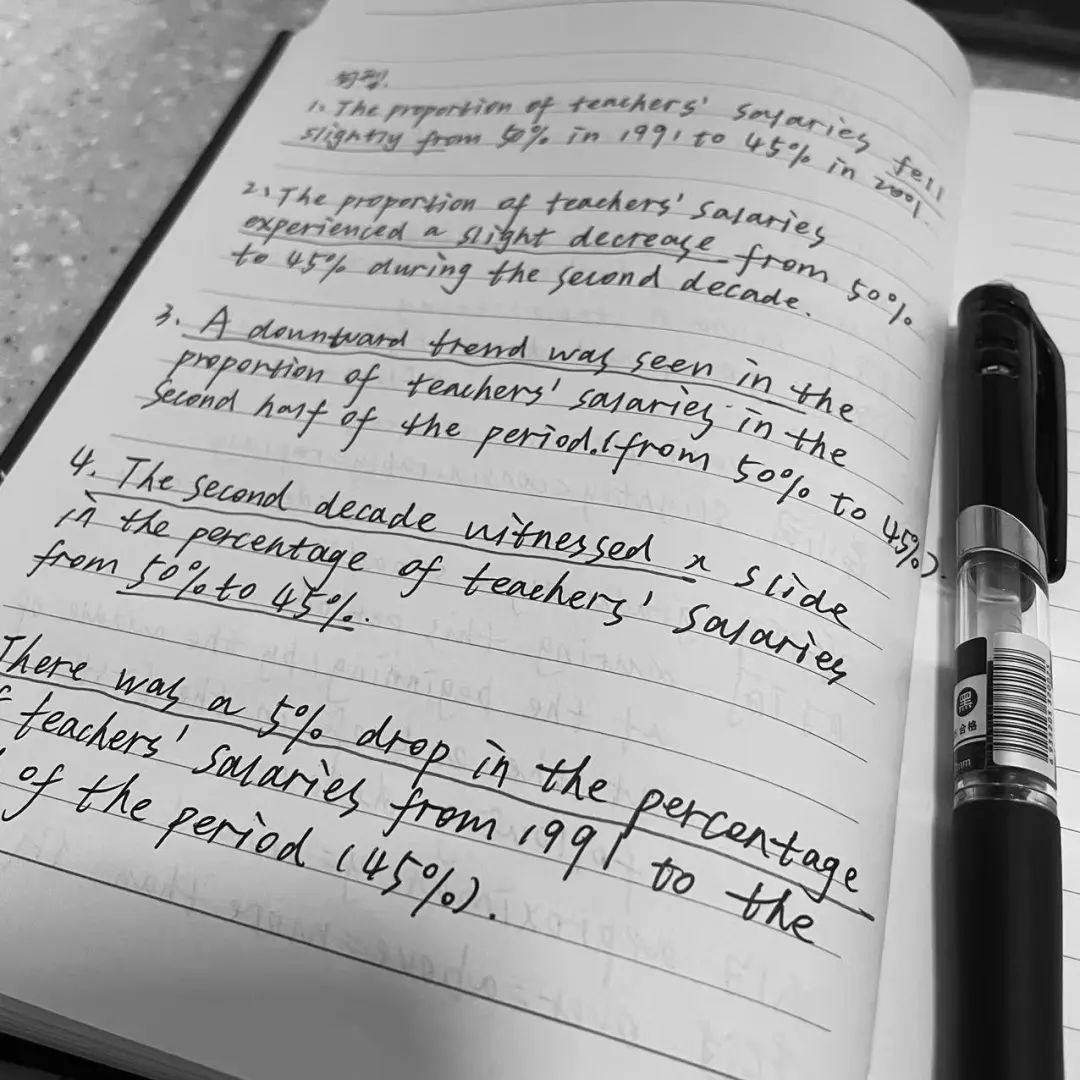 句型.
1. The proportion of teachers' salaries fell
slightly from 50% in 1991 to 45% in 2001.
2、The proportion of teachers' salaries
experienced a slight decrease from 50%
to 45% during the second decade.
3. A downward trend was seen in the
proportion of teachers' salaries in the
second half of the period.(from 50% to 45%).
4. The second decade witnessed a slide
in the percentage of teachers' salaries
from 50% to 45%.
There was a 5% drop in the percentage
teachers' salaries from 1991 to the
of the period (45%).
黑
合格
mm